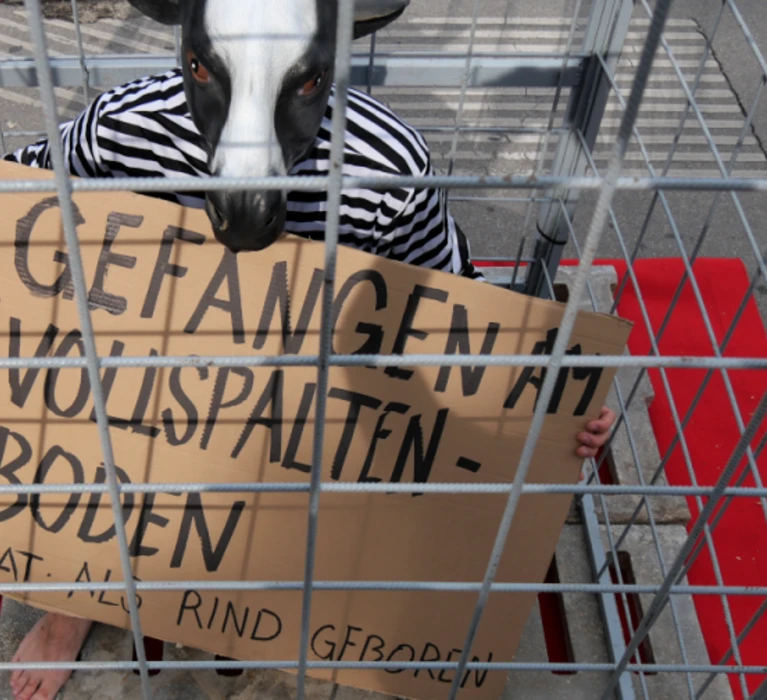 GEFANGEN AM
VOLLSPALTEN-
BODEN
AT: ALS RIND GEBOREN